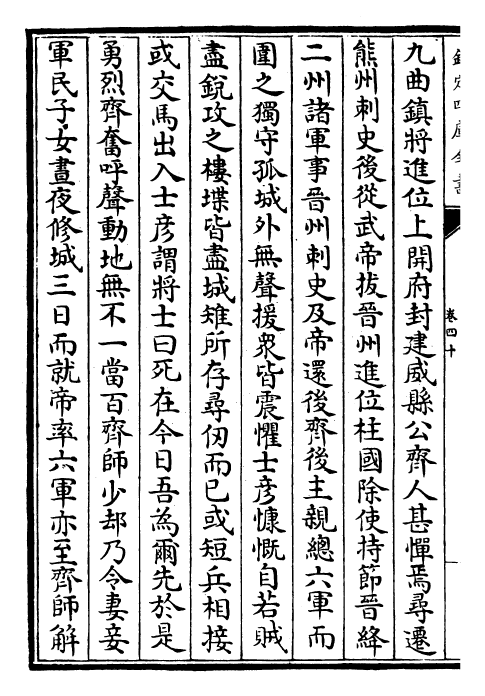 欽定四庫全書
卷四十
九曲鎮將進位上開府封建威縣公齊人甚憚焉尋遷
熊州刺史後從武帝拔晉州進位柱國除使持節晉絳
二州諸軍事晉州刺史及帝還後齊後主親總六軍而
圍之獨守孤城外無聲援衆皆震懼士彦慷慨自若賊
盡銳攻之樓堞皆盡城雉所存尋仞而已或短兵相接
或交馬出入士彦謂將士曰死在今日吾為爾先於是
勇烈齊奮呼聲動地無不一當百齊師少却乃令妻妾
軍民子女晝夜修城三日而就帝率六軍亦至齊師解